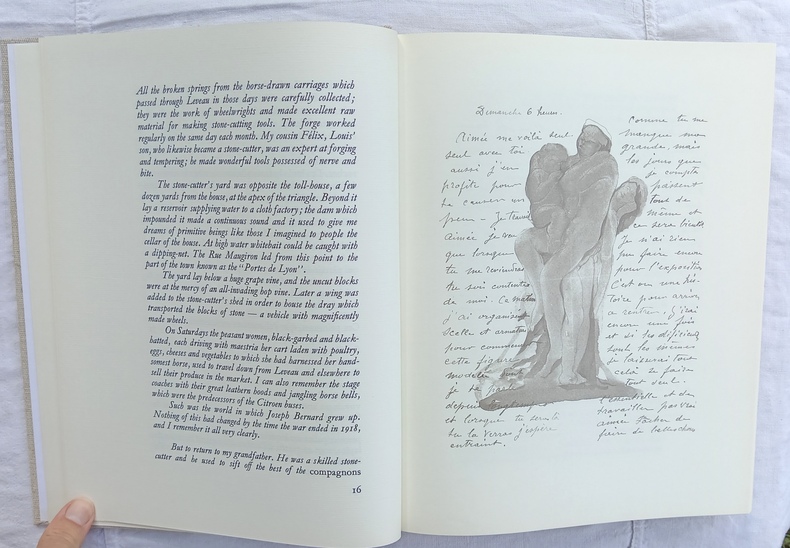 All the broken springs from the horse-drawn carriages which
passed through Leveau in those days were carefully collected;
they were the work of wheelwrights and made excellent raw
material for making stone-cutting tools. The forge worked
regularly on the same day each month. My cousin Félix, Louis'
son, who likewise became a stone-cutter, was an expert at forging
and tempering; he made wonderful tools possessed of nerve and
bite.
The stone-cutter's yard was opposite the toll-house, a few
dozen yards from the house, at the apex of the triangle. Beyond it
lay a reservoir supplying water to a cloth factory; the dam which
impounded it made a continuous sound and it used to give me
dreams of primitive beings like those I imagined to people the
cellar of the house. At high water whitebait could be caught with
a dipping-net. The Rue Maugiron led from this point to the
part of the town known as the "Portes de Lyon".
The yard lay below a huge grape vine, and the uncut blocks
were at the mercy of an all-invading hop vine. Later a wing was
added to the stone-cutter's shed in order to house the dray which
transported the blocks of stone — a vehicle with magnificently
made wheels.
On Saturdays the peasant women, black-garbed and black-
hatted, each driving with maestria her cart laden with poultry,
eggs, cheeses and vegetables to which she had harnessed her hand-
somest horse, used to travel down from Leveau and elsewhere to
sell their produce in the market. I can also remember the stage
coaches with their great leathern hoods and jangling horse bells,
which were the predecessors of the Citroen buses.
Such was the world in which Joseph Bernard grew up.
Nothing of this had changed by the time the war ended in 1918,
and I remember it all very clearly.
But to return to my grandfather. He was a skilled stone-
cutter and he used to sift off the best of the compagnons
16
Dimanche 6 heures.
Aimée me voilà seul
seul avec toi
aussi j'en
profite pour
te causer un
peu
Aimée je
que lorsque
tu me reviendras
de moi. Ce matin
j'ai organisé
scelle et armature
pour commencer
cette figure
je te
depuis
et lorsque tu seras
tu la verras j'espère
entraint.
Comme tu me
manque mon
grande, mais
les jours que
je compte
passent
tout de
même et
ce sera bientôt
Je n'ai rien
pu faire encore
pour l'exposition
C'est une his-
toire pour arriver
a rentrer. J'irai
encore une fois
et si les difficultés
sont les mêmes
je laisserai tout
cela tu feras
tout seul.
l'essentielle est de
travailler pas vrai
aimée tacher de
faire de belles choses